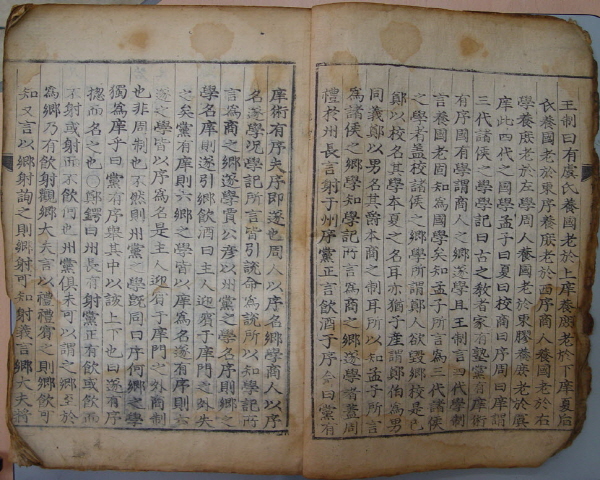 王制曰有虞氏養國老於上庠養庶老於下庠夏后
氏養國老於東序養庶老於西序商人養國老於右
學養庶老於左學周人養國老於東膠養庶老於虞
庠此四代之國學孟子曰夏曰校商曰序周曰庠謂
三代諸侯之學學記曰古之教者家有塾黨有庠術
有序國有學謂商人之鄉遂學且王制言四代學制
言養國老固知為國學矣知孟子所言為三代諸侯
之學者蓋校諸侯之鄉學所謂鄭人欲毀鄉校是也
鄭以校名其學本夏之名耳亦猶子産謂鄭伯為男
同義鄭以男名其爵本商之制耳所以知孟子所言
為諸侯之鄉學知學記所言為商之鄉遂學者盖周
禮於州長言射于州序黨正言飲酒于序 曰黨有
庠術有序夫序即遂也周人以序名鄉學商人以序
名遂學况學記所言皆引說命為說所以知學記所
言為商之鄉遂學賈公彦以州黨之學名序則鄉之
學名庠則遂引鄉飲酒曰主人迎賓于庠門之外失
之矣黨有庠則六鄉之學皆以庠為名遂有序則六
遂之學皆以序為名是主人迎賓于庠門之外商制
也非周制也不然則州黨之學既同曰序何鄉之學
獨為庠乎曰黨有序舉其中以該上下也曰遂有序
揔而名之也〇鄭鍔曰州長有射黨正有飲或飲而
不射或射而不飲 也州黨俱未可以謂之鄉至於
為鄉乃有飲射觀鄉大夫言以禮禮賓之則鄉飲可
知又言以鄉射詢之則鄉射可知射義言鄉大夫將